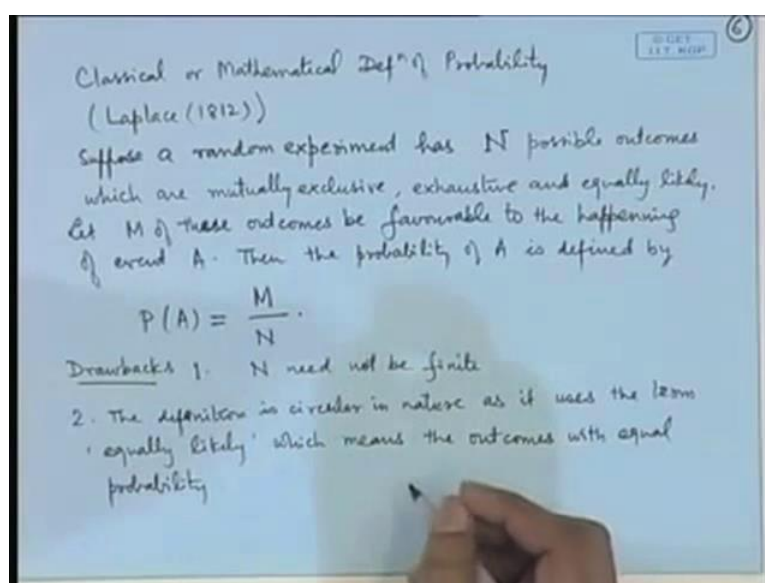 6
© CET
I.I.T. KGP
Classical or Mathematical Defⁿ of Probability
(Laplace (1812))
Suppose a random experiment has N possible outcomes
which are mutually exclusive, exhaustive and equally likely.
Let M of these outcomes be favourable to the happening
of event A. Then the probability of A is defined by
P(A) = M/N.
Drawbacks 1. N need not be finite
2. The definition is circular in nature as it uses the term
'equally likely' which means the outcomes with equal
probability